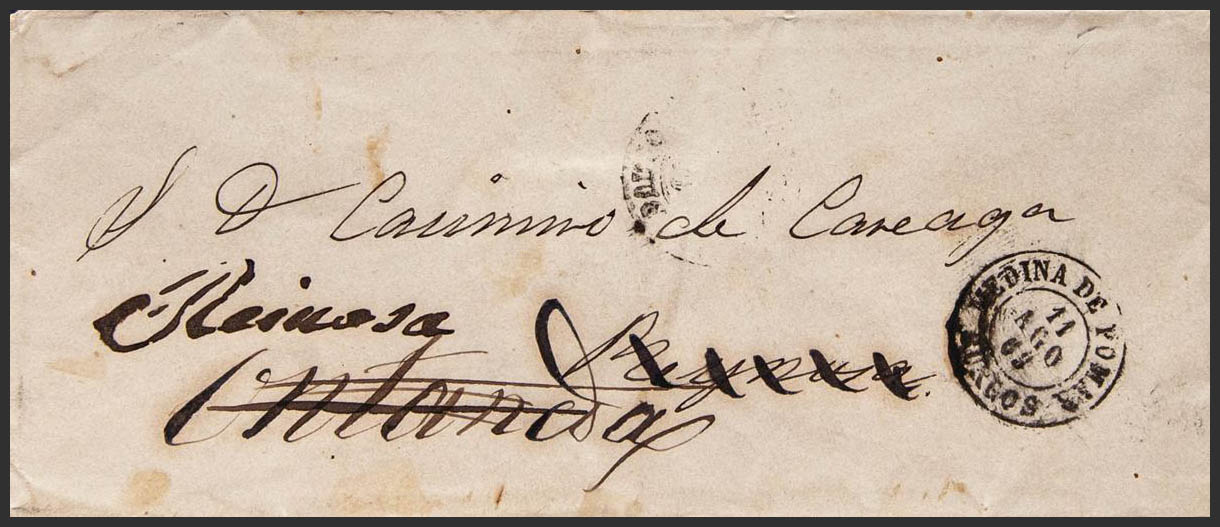 S D Casimiro de Careaga
Reinosa
Ontaneda
MEDINA DE POMAR
11
AGO
BURGOS